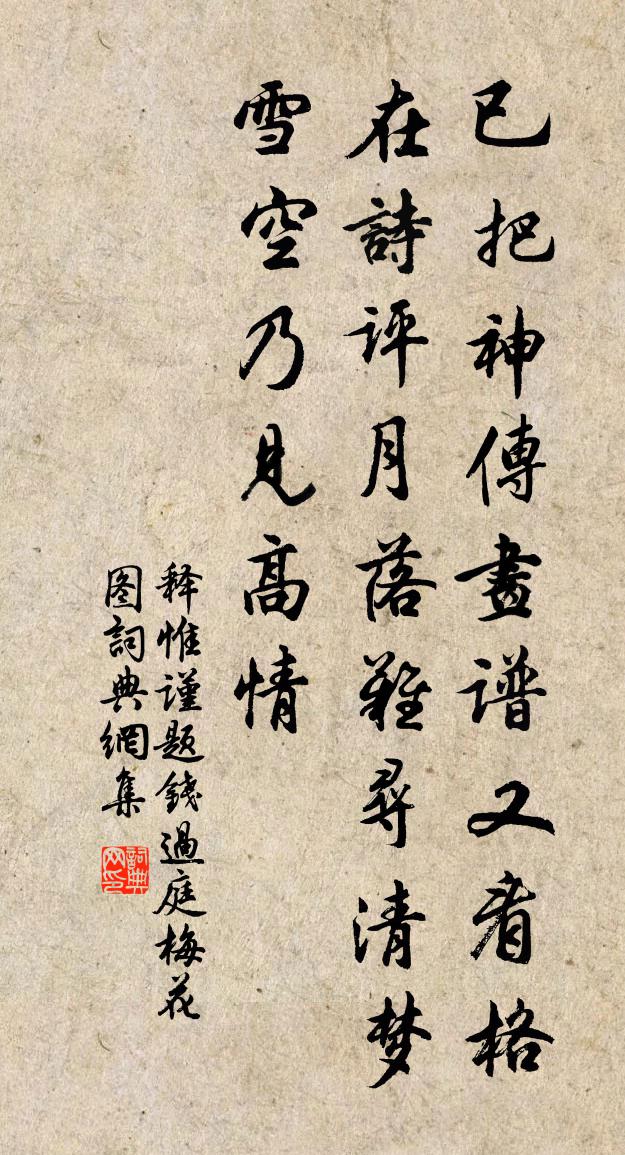 已把神傳畫谱又看格
在詩評月落難尋清梦
雪空乃見高情
释惟谨题錢過庭梅花
图詞典網集
詞典网印